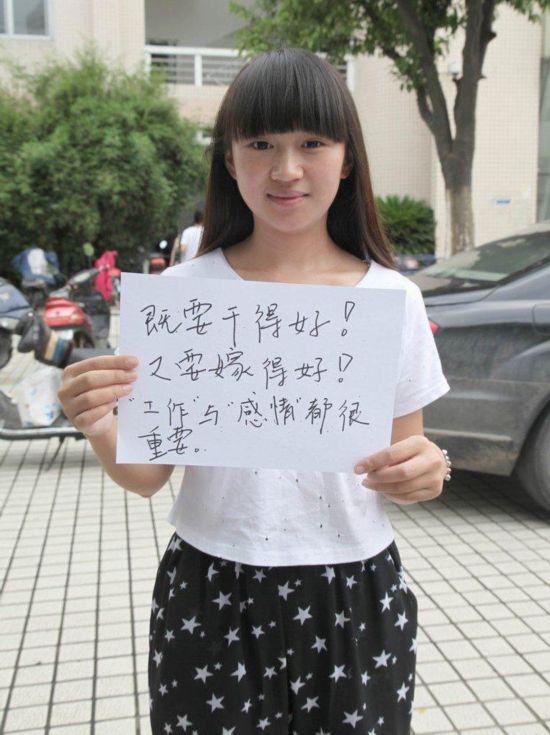 既要干得好！
又要嫁得好！
"工作"与"感情"都很
重要。